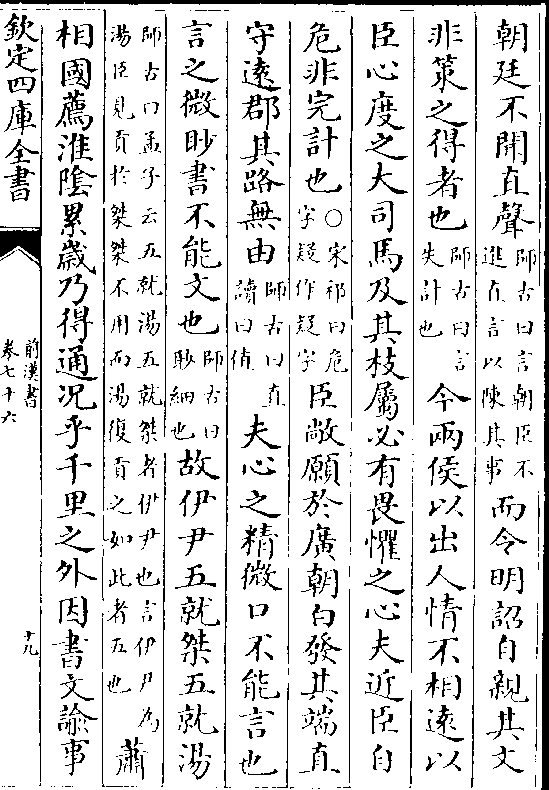 朝廷不聞直聲師古曰言朝臣不進直言以陳其事而令明詔自親其文
非策之得者也師古曰言失計也今兩侯以出人情不相遠以
臣心度之大司馬及其枝屬必有畏懼之心夫近臣自
危非完計也○宋祁曰危字疑作疑字臣敞願於廣朝白發其端直
守遠郡其路無由師古曰直讀曰值夫心之精微口不能言也
言之微眇書不能文也師古曰眇細也故伊尹五就桀五就湯
師古曰孟子云五就湯五就桀者伊尹也言伊尹為湯臣見貢於桀桀不用而湯復貢之如此者五也蕭
相國薦淮陰累歲乃得通况乎千里之外因書文諭事
欽定四庫全書
前漢書
卷七十六
十九